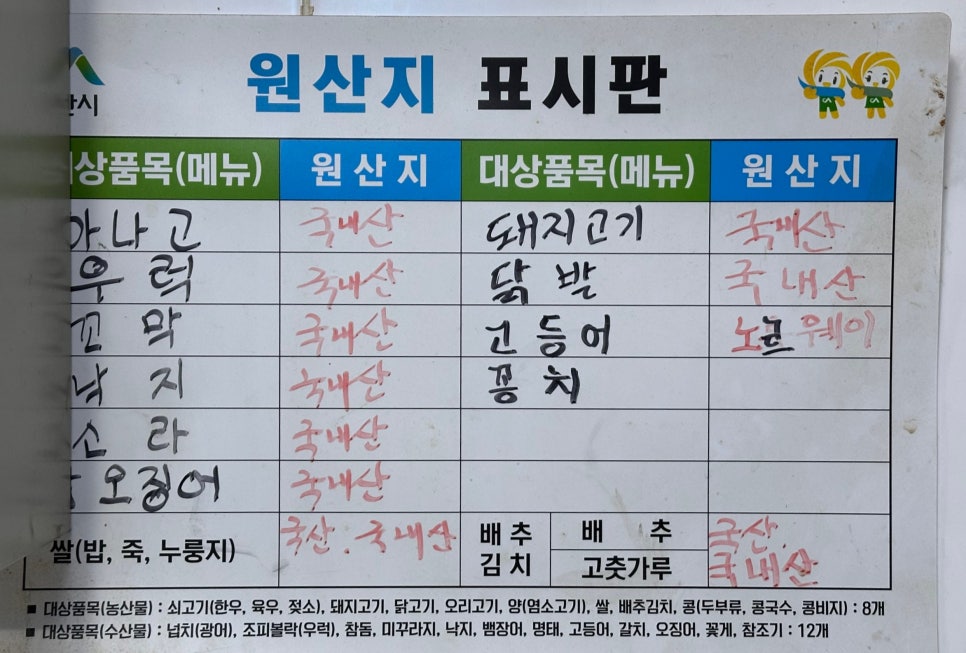 산시
원산지 표시판
상품목(메뉴) 원산지 대상품목(메뉴) 원산지
아나고 국내산 돼지고기 국내산
우럭 국내산 닭발 국내산
꼬막 국내산 고등어 노르웨이
낙지 국내산 꽁치
소라 국내산
오징어 국내산
쌀(밥, 죽, 누룽지) 국산. 국내산 배추김치 배추 국산.
고춧가루 국내산
■ 대상품목(농산물) : 쇠고기(한우, 육우, 젖소), 돼지고기, 닭고기, 오리고기, 양(염소고기), 쌀, 배추김치, 콩(두부류, 콩국수, 콩비지) : 8개
■ 대상품목(수산물) : 넙치(광어), 조피볼락(우럭), 참돔, 미꾸라지, 낙지, 뱀장어, 명태, 고등어, 갈치, 오징어, 꽃게, 참조기 : 12개